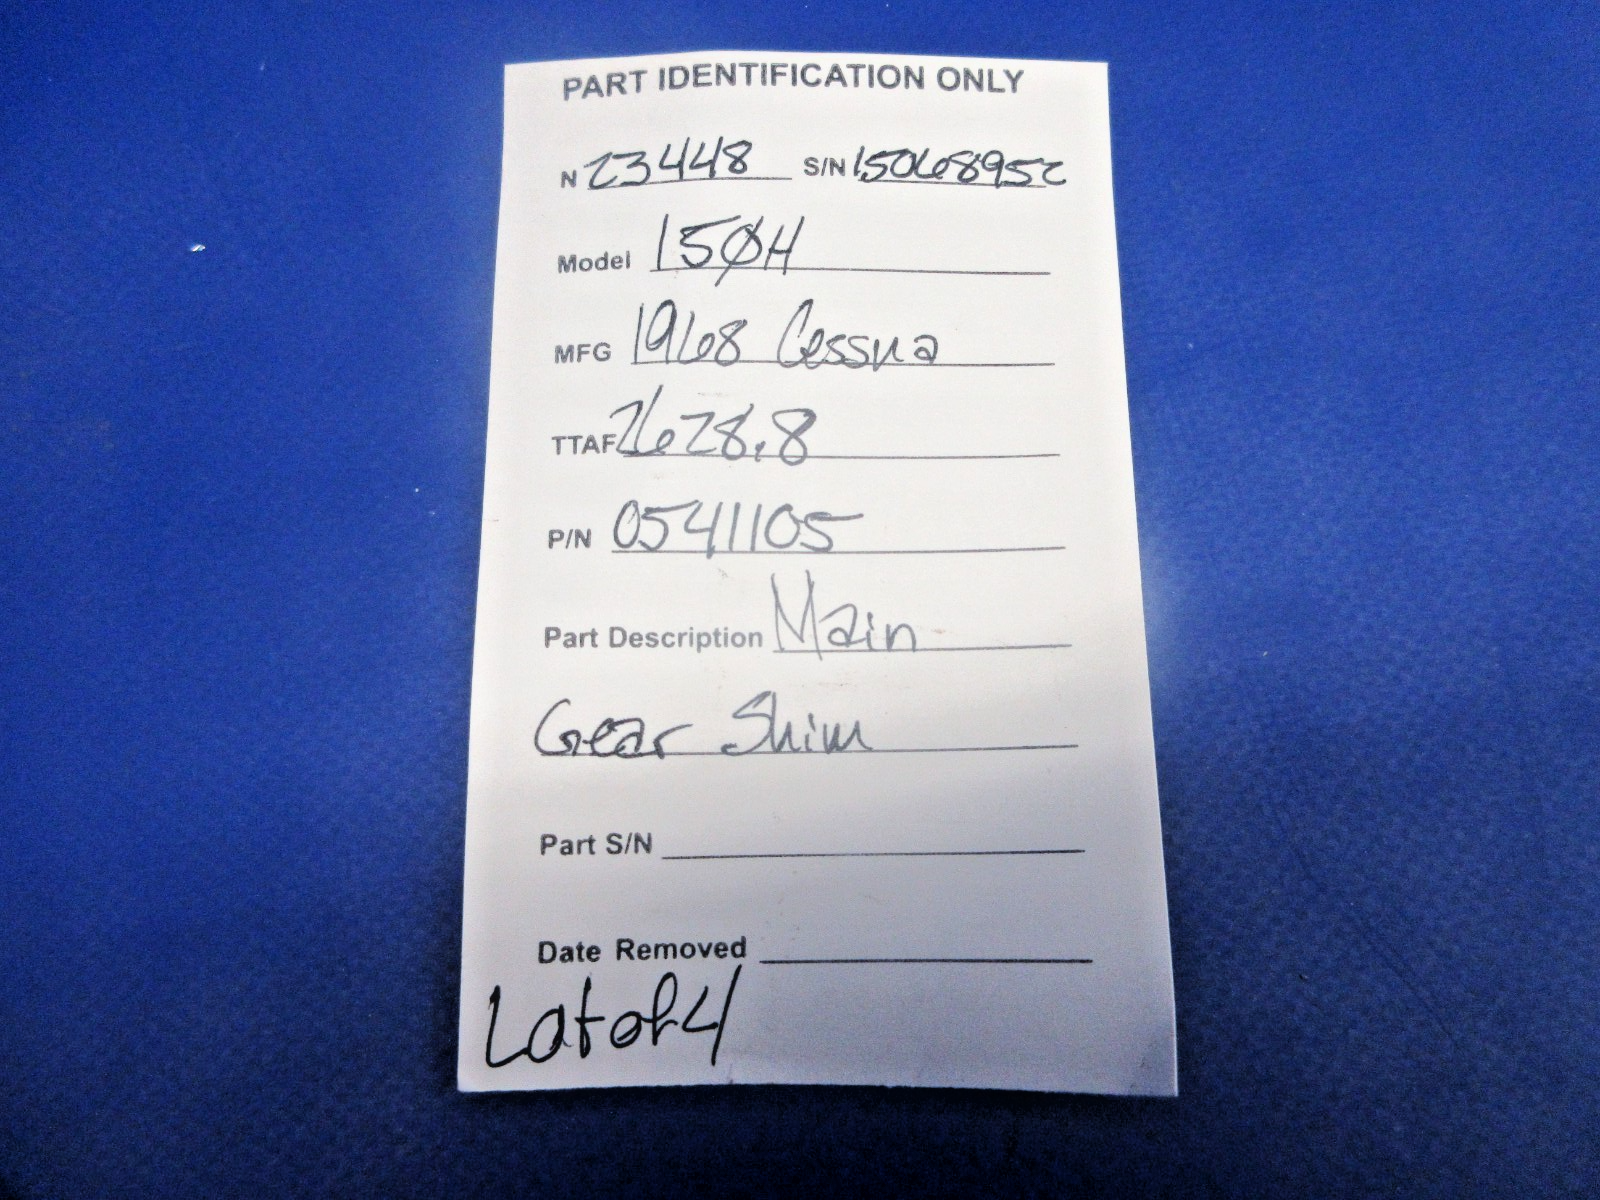 PART IDENTIFICATION ONLY
N 23448 S/N 15068952
Model 150H
MFG 1968 Cessna
TTAF 2628.8
P/N 0541105
Part Description Main
Gear Shim
Part S/N
Date Removed
Lot of 4